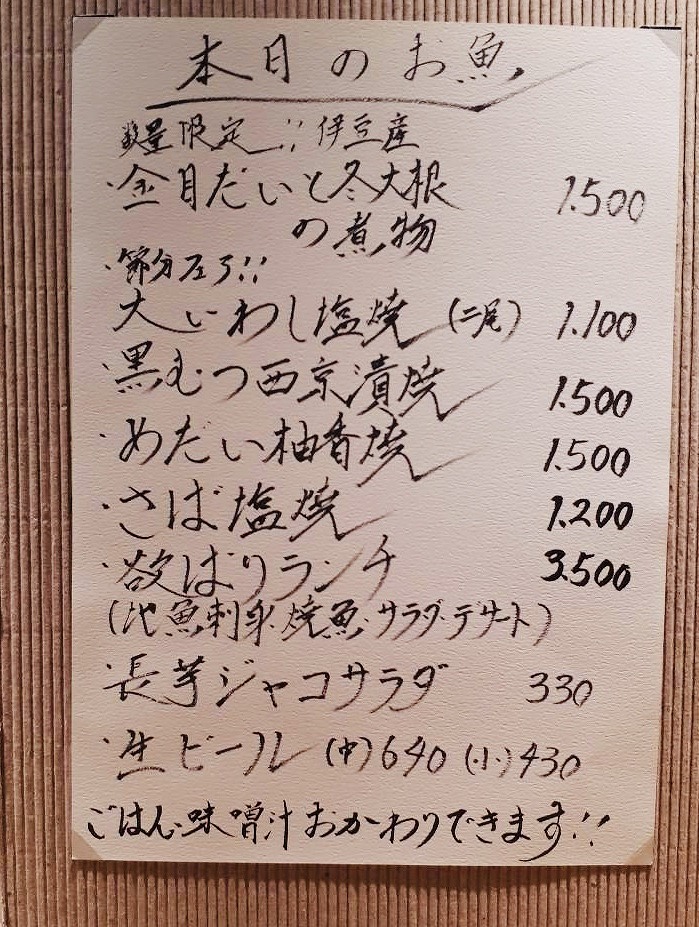 本日のお魚
数量限定!!伊豆産
・金目だいと冬大根 1.500
の煮物
・節分フェア!!
大いわし塩焼 (二尾) 1.100
・黒むつ西京漬焼 1.500
・めだい柚香焼 1.500
・さば塩焼 1.200
・欲ばりランチ 3.500
(地魚刺身・焼魚・サラダ・デザート)
・長芋ジャコサラダ 330
・生ビール (中)640 (小)430
ごはん・味噌汁おかわりできます!!